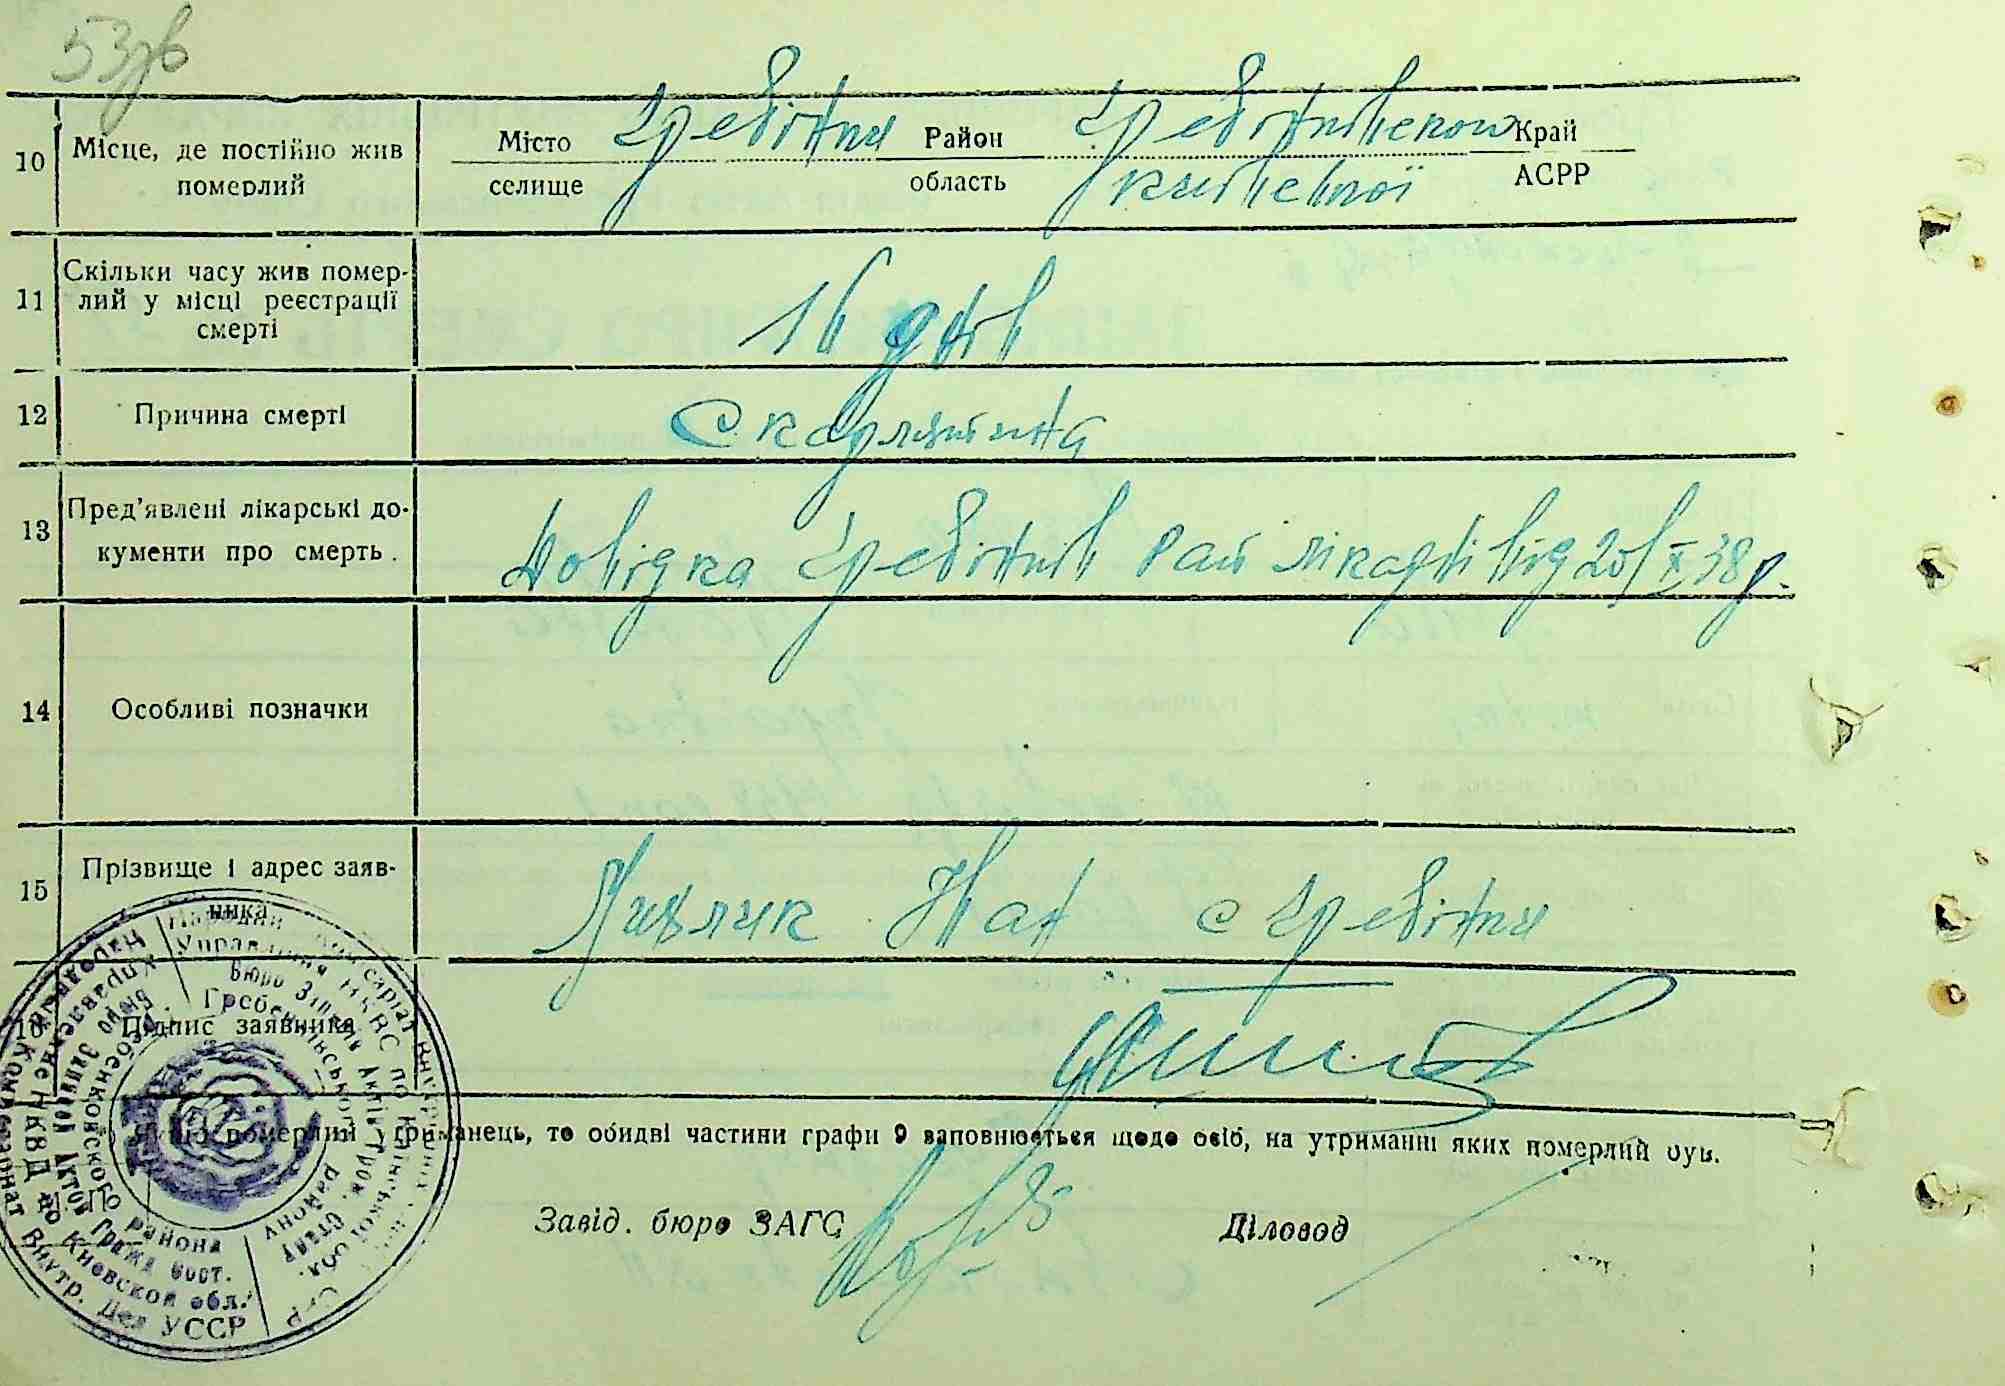 53зв
10 Місце, де постійно жив померлий
Місто селище Гребінки Район область Гребінківського Київської Край АСРР
11 Скільки часу жив помер-
лий у місці реєстрації
смерті
16 днів
12 Причина смерті Скарлятина
13 Пред'явлені лікарські до-
кументи про смерть.
Довідка Гребінків рай лікарні від 20/X 38 р.
14 Особливі позначки
15 Прізвище і адрес заяв-
ника
Іван с Гребінки
16 Підпис заявника
померлий утриманець, то обидві частини графи 9 заповнюється щодо осіб, на утриманні яких померлий був.
Завід. бюро ЗАГС Діловод
Народний Комісаріат Внутрішніх Справ УСРР
Управління НКВС по Київській обл.
Бюро Записів Актів Гром. Стану
Гребенківського району
Народный Комиссариат Внутр. Дел УССР
Управление НКВД по Киевской обл.
Бюро Записей Актов Гражд Сост.
Гребенковского района